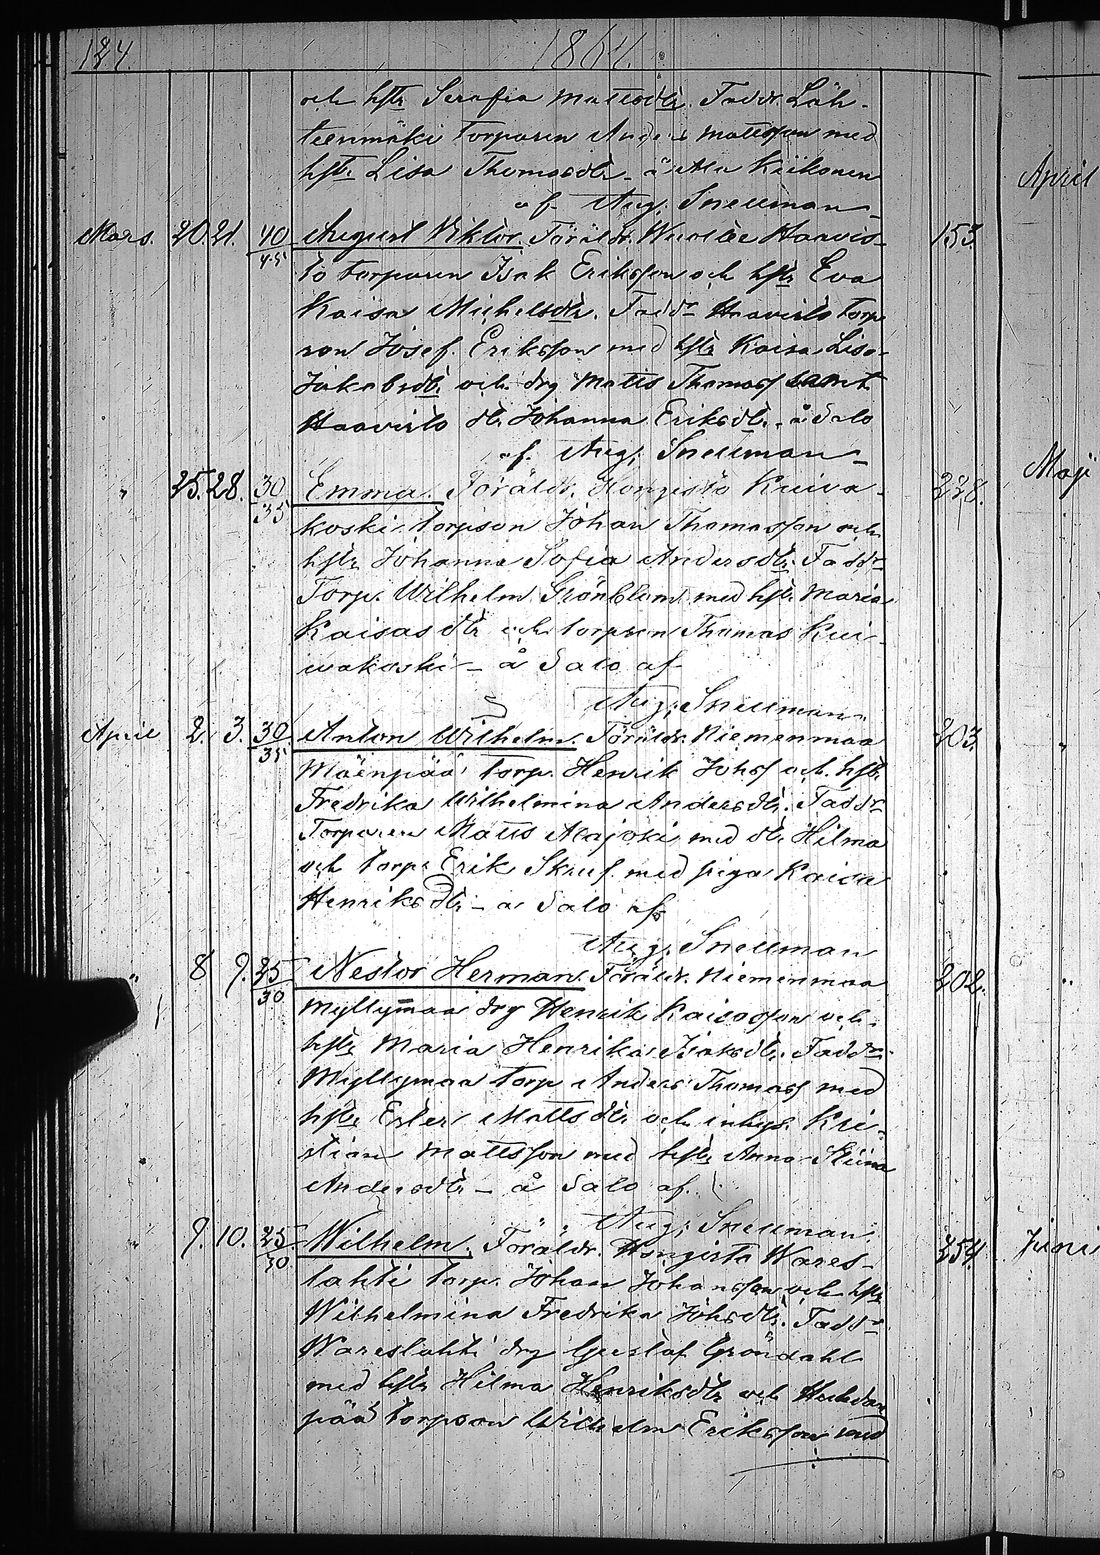 184. 1864.
och hstr Serafia Mattsdtr. Faddr. Läh-
teenmäki torparen Anders Mattsson med
hstr Lisa Thomasdtr - å Ala Kiikonen
af Aug. Snellman -
Mars. 20. 21. 40/45 August Viktor. Föräldr. Haavis- 153.
to torparen Isak Eriksson och hstr Eva
Kaisa Michelsdtr. Faddr Haavisto torpa
ron Josef Eriksson med hstr Kaisa Lisa
Jakobsdtr. och drg Matts Thomass samt
Haavisto dtr Johanna Eriksdtr. - å Salo
af. Aug. Snellman -
" 25. 28. 30/35 Emma. Föräldr. Hongisto Kuiva- 228.
koski torpson Johan Thomasson och
hstr Johanna Sofia Andersdtr. Faddr
Torp. Wilhelm Grönblom med hstr Maria
Kaisasdtr och torpson Thomas Kui-
wakoski - å Salo af
Aug. Snellman.
April 2. 3. 30/35 Anton Wilhelm. Föräldr. Niemenmaa 203.
Mäenpää torp. Henrik Johss och hstr
Fredrika Wilhelmina Andersdtr. Faddr
Torparen Matts Alajoki med dtr Hilma
och torp. Erik Skruf med piga Kaisa
Henriksdtr - å Salo af
Aug. Snellman
" 8 9. 25/30 Nestor Herman. Föräldr. Niemenmaa 202.
Myllymaa drg Henrik Kaisasson och
hstr Maria Henrika Isaksdtr. Faddr
Myllymaa torp Anders Thomass med
hstr Ester Mattsdtr och inhys. Kri-
stian Mattsson med hstr Anna Stiina
Andersdtr - å Salo af
Aug. Snellman.
" 9. 10. 25/30 Wilhelm. Föräldr. Hongisto Wares- 254.
lahti torp. Johan Johansson och hstr
Wilhelmina Fredrika Johsdtr. Faddr
Wareslahti drg Gustaf Gröndahl
med hstr Hilma Henriksdtr och
pää torpson Wilhelm Eriksson med
April
Maji
"
"
"
Juni